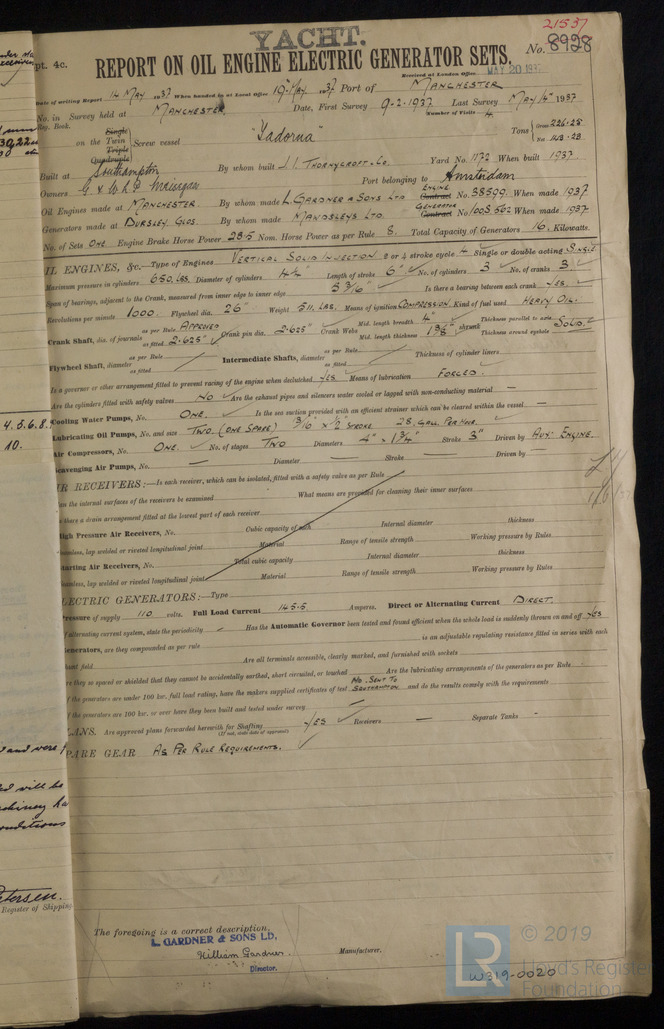 21537
YACHT.
REPORT ON OIL ENGINE ELECTRIC GENERATOR SETS. No. 8928
pt. 4c.
Received at London Office MAY 20 193
Date of writing Report 14 May 1937 When handed in at Local Office 19th May 1937 Port of MANCHESTER
No. in Survey held at MANCHESTER. Date, First Survey 9-2-1937 Last Survey MAY 14th 1937
Reg. Book. Number of Visits 4
on the Single Twin Triple Quadruple Screw vessel "Tadorna" Tons Gross 226.28 Net 143.28
Built at Southampton By whom built J. I. Thornycroft & Co. Yard No. 1172 When built 1937
Owners Port belonging to Amsterdam
Oil Engines made at MANCHESTER. By whom made L. GARDNER & SONS LTD ENGINE Contract No. 38599. When made 1937
Generators made at DURSLEY, GLOS. By whom made MAWDSLEYS LTD. GENERATOR Contract No. When made 1937
No. of Sets ONE. Engine Brake Horse Power 28.5 Nom. Horse Power as per Rule 8. Total Capacity of Generators 16. Kilowatts.
OIL ENGINES, &c.—Type of Engines VERTICAL SOLID INJECTION 2 or 4 stroke cycle 4 Single or double acting SINGLE
Maximum pressure in cylinders 650. LBS. Diameter of cylinders 4¼" Length of stroke 6" No. of cylinders 3 No. of cranks 3
Span of bearings, adjacent to the Crank, measured from inner edge to inner edge 3 3/16" Is there a bearing between each crank YES.
Revolutions per minute 1000. Flywheel dia. 26" Weight 511. LBS. Means of ignition COMPRESSION. Kind of fuel used HEAVY OIL.
Crank Shaft, dia. of journals as per Rule APPROVED as fitted 2.625" Crank pin dia. 2.625" Crank Webs Mid. length breadth 4" Mid. length thickness shrunk Thickness parallel to axis Thickness around eyehole SOLID.
Flywheel Shaft, diameter as per Rule as fitted Intermediate Shafts, diameter as per Rule as fitted Thickness of cylinder liners
Is a governor or other arrangement fitted to prevent racing of the engine when declutched YES Means of lubrication FORCED
Are the cylinders fitted with safety valves NO Are the exhaust pipes and silencers water cooled or lagged with non-conducting material —
Cooling Water Pumps, No. ONE. Is the sea suction provided with an efficient strainer which can be cleared within the vessel —
Lubricating Oil Pumps, No. and size TWO. (ONE SPARE) 3/16" x ½" STROKE 28. GALL PER HOUR.
Air Compressors, No. ONE. No. of stages TWO Diameters 4" x 1¾" Stroke 3" Driven by AUX. ENGINE.
Scavenging Air Pumps, No. — Diameter — Stroke — Driven by —
AIR RECEIVERS:—Is each receiver, which can be isolated, fitted with a safety valve as per Rule
Can the internal surfaces of the receivers be examined What means are provided for cleaning their inner surfaces
Is there a drain arrangement fitted at the lowest part of each receiver
High Pressure Air Receivers, No. Cubic capacity of each Internal diameter thickness
Seamless, lap welded or riveted longitudinal joint Material Range of tensile strength Working pressure by Rules
Starting Air Receivers, No. Total cubic capacity Internal diameter thickness
Seamless, lap welded or riveted longitudinal joint Material Range of tensile strength Working pressure by Rules
ELECTRIC GENERATORS:—Type
Pressure of supply 110 volts. Full Load Current 145.5 Amperes. Direct or Alternating Current DIRECT.
If alternating current, state the periodicity — Has the Automatic Governor been tested and found efficient when the whole load is suddenly thrown on and off YES
Generators, are they compounded as per rule is an adjustable regulating resistance fitted in series with each
shunt field Are all terminals accessible, clearly marked, and furnished with sockets
Are they so spaced or shielded that they cannot be accidentally earthed, short circuited, or touched Are the lubricating arrangements of the generators as per Rule
If the generators are under 100 kw. full load rating, have the makers supplied certificates of test NO. SENT TO SOUTHAMPTON and do the results comply with the requirements
If the generators are 100 kw. or over have they been built and tested under survey
PLANS. Are approved plans forwarded herewith for Shafting YES Receivers — Separate Tanks -
(If not, state date of approval)
SPARE GEAR AS PER RULE REQUIREMENTS.
The foregoing is a correct description,
L. GARDNER & SONS LD.
William Gardner. Manufacturer.
Director.
© 2019
LR
Lloyd's Register
Foundation
W319-0020
4.5.6.8.
10.
and were
will be
Register of Shipping